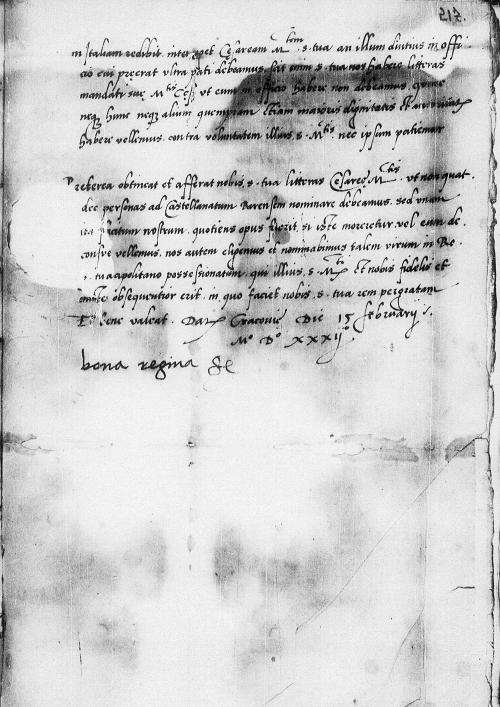 212.
in Italiam redibit. interroget Cesaream M.tem s. tua an illum diutius in offi
cio cui preerat ultra pati debeamus. scit enim s. tua nos habere litteras
mandati sue M.tis Ces. ut eum in officio habere non debeamus.
neq3 hunc neq3 alium quempiam etiam maioris dignitatis et
habere vellemus. contra voluntatem illius s. M.tis nec ipsum patiemur
Preterea obtineat et afferat nobis. s. tua litteras Cesaree M.tis ut non quat
dec personas ad Castellanatum Barensem nominare debeamus. sed unam
nostrum. quotiens opus fuerit. si iste moreretur. vel eum de
vellemus. nos autem eligemus et nominabimus talem virum in Re
possesionatum. qui illius. s. M.ti et nobis fidelis et
obsequentior erit. in quo faciet nobis. s. tua rem pergratam
Et bene valeat. Dat. Cracovie Die 15 februarij.
M.o D.o XXXII.o
bona regina